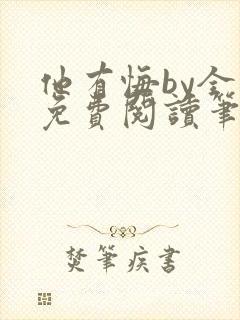 他有悔by全
免費閱讀筆
焚筆疾書